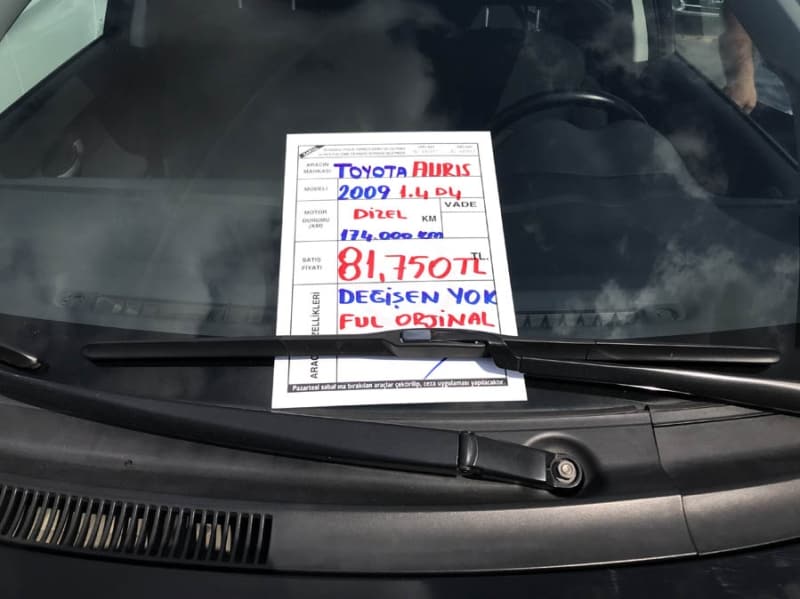 ARACIN MARKASI TOYOTA AURIS
MODELİ 2009 1.4 D4
MOTOR DURUMU (KM) DİZEL KM VADE
174.000 km
SATIŞ FİYATI 81,750 TL TL.
DEGİŞEN YOK
FUL ORJİNAL
Pazartesi sabahına bırakılan araçlar çektirilip, ceza uygulaması yapılacaktır.